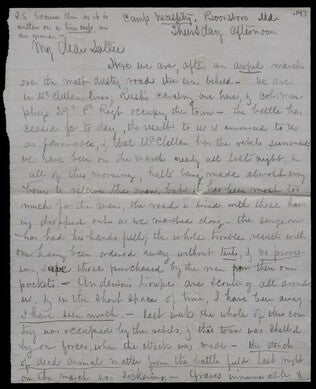 P.S. Excuse this as it is
written on a tin cup, on
the ground.
Camp Necessity, Boonsboro Md.
Thursday afternoon
My dear Sallie
Here we are, after an awful march
over the most dusty road the sun beheld - we are
in McClellan's lines, Rush's cavalry are here, &
29th Pa Regt occupy the town - the battle has
ceased for to day, the result to us is announced to us
as favourable, & that McClellan has the rebels surrounded
we have been on the march nearly all last night, &
all of this morning, halts being made almost every
hour to relieve the men, but it has been most too
much for the men, the road is lined with those hav-
ing dropped out as we marched along - the surgeon
has had his hands full; the whole trouble rests with
our having been ordered away without tents, & no provis-
ion, save those purchased by the men from their own
pockets - Anderson's troops are scouting all around
us, & in the short space of time, I have been away
I have seen much - last week the whole of this coun-
try was occupied by the rebels, & this town was shelled
by our forces, when the attack was made - the stench
of dead animal matter from the battle field last night
on the march was sickening - Graves innumerable &